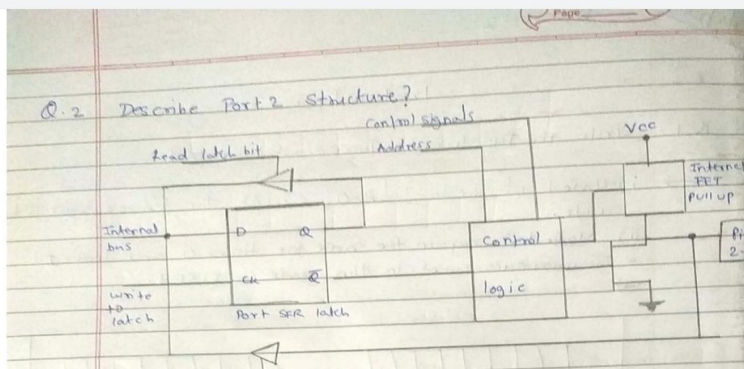 Page
Q.2 Describe Port 2 Structure?
Control signals
Vcc
Read latch bit
Address
Internal
FET
Pull up
Internal
bus
D Q
Control
Pi
2-
CK Q̅
logic
write
to
latch
Port SFR latch